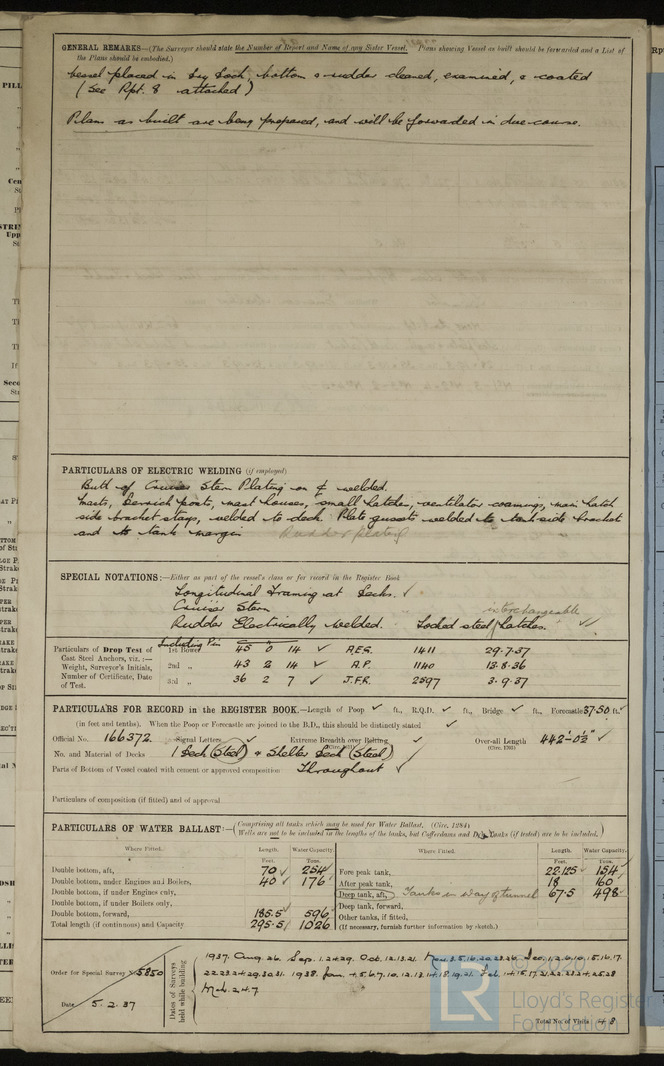 GENERAL REMARKS—(The Surveyor should state the Number of Report and Name of any Sister Vessel. Plans showing Vessel as built should be forwarded and a List of
the Plans should be embodied.)
Vessel placed in dry dock, bottom & rudder cleaned, examined, & coated
(See Rpt. 8 attached)
Plans as built are being prepared, and will be forwarded in due course.
PARTICULARS OF ELECTRIC WELDING (if employed)
Butt of Cruiser Stern Plating on ₵ welded.
Masts, Derrick posts, mast houses, small hatches, ventilator coamings, main hatch
side bracket stays, welded to deck. Plate gussets welded to tank side bracket
and to tank margin Rudder plating
SPECIAL NOTATIONS:—Either as part of the vessel's class or for record in the Register Book
Longitudinal Framing at Decks. ✓
Cruiser Stern interchangeable
Rudder Electrically welded. steel hatches. ✓
Particulars of Drop Test of Including Pin 1st Bower 45 0 14 ✓ A.E.S. 1411 29.7.37
Cast Steel Anchors, viz.:—
Weight, Surveyor's Initials, 2nd „ 43 2 14 ✓ A.P. 1140 13.8.36
Number of Certificate, Date
of Test. 3rd „ 36 2 7 ✓ J.F.R. 2597 3.9.37
PARTICULARS FOR RECORD in the REGISTER BOOK.—Length of Poop ✓ ft., R.Q.D. ✓ ft., Bridge ✓ ft., Forecastle 37.50 ft. ✓
(in feet and tenths). When the Poop or Forecastle are joined to the B.D., this should be distinctly stated ✓
Official No. 166372. Signal Letters ✓ Extreme Breadth over Belting ✓ Over-all Length 442'-0½" ✓
(Circ. 1703)
No. and Material of Decks 1 Deck (Steel) & Shelter Deck (Steel)
Parts of Bottom of Vessel coated with cement or approved composition Throughout ✓
Particulars of composition (if fitted) and of approval
PARTICULARS OF WATER BALLAST:—(Comprising all tanks which may be used for Water Ballast, (Circ. 1284)
Wells are not to be included in the lengths of the tanks, but Cofferdams and Dry Tanks (if tested) are to be included.)
Where Fitted. Length. Water Capacity. Where Fitted. Length. Water Capacity.
Feet. Tons. Feet. Tons.
Double bottom, aft, 70 ✓ 254 Fore peak tank, 22.125 ✓ 154
Double bottom, under Engines and Boilers, 40 ✓ 176 After peak tank, 18 160
Double bottom, if under Engines only, Deep tank, aft, Tanks in way of tunnel 67.5 498
Double bottom, if under Boilers only, Deep tank, forward,
Double bottom, forward, 185.5 ✓ 596 Other tanks, if fitted,
Total length (if continuous) and Capacity 295.5 1026 (If necessary, furnish further information by sketch.)
Order for Special Survey No. 5850
Date 5.2.37
Dates of Surveys held while building
1937. Aug. 26. Sep. 1.24.29. Oct. 12.13.21. Nov. 3.5.16.20.23.26. Dec. 1.2.6.10.15.16.17.
22.23.24.29.30.31. 1938. Jan. 4.5.6.7.10.12.13.14.18.19.21. Feb. 1.4.15.17.21.22.23.24.25.28
Mch. 2.4.7
Total No. of Visits 48
© 2020
LR
Lloyd's Register
Foundation